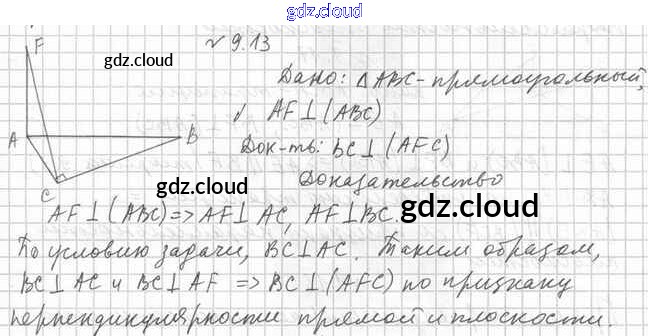 gdz.cloud
F
gdz.cloud
№ 9.13
Дано: △ABC-прямоугольный,
AF⊥(ABC)
A
B
Док-ть: BC⊥(AFC)
C
gdz.cloud
Доказательство
AF⊥(ABC)=>AF⊥AC, AF⊥BC.
gdz.cloud
По условию задачи, BC⊥AC. Таким образом,
BC⊥AC и BC⊥AF => BC⊥(AFC) по признаку
перпендикулярности прямой и плоскости.